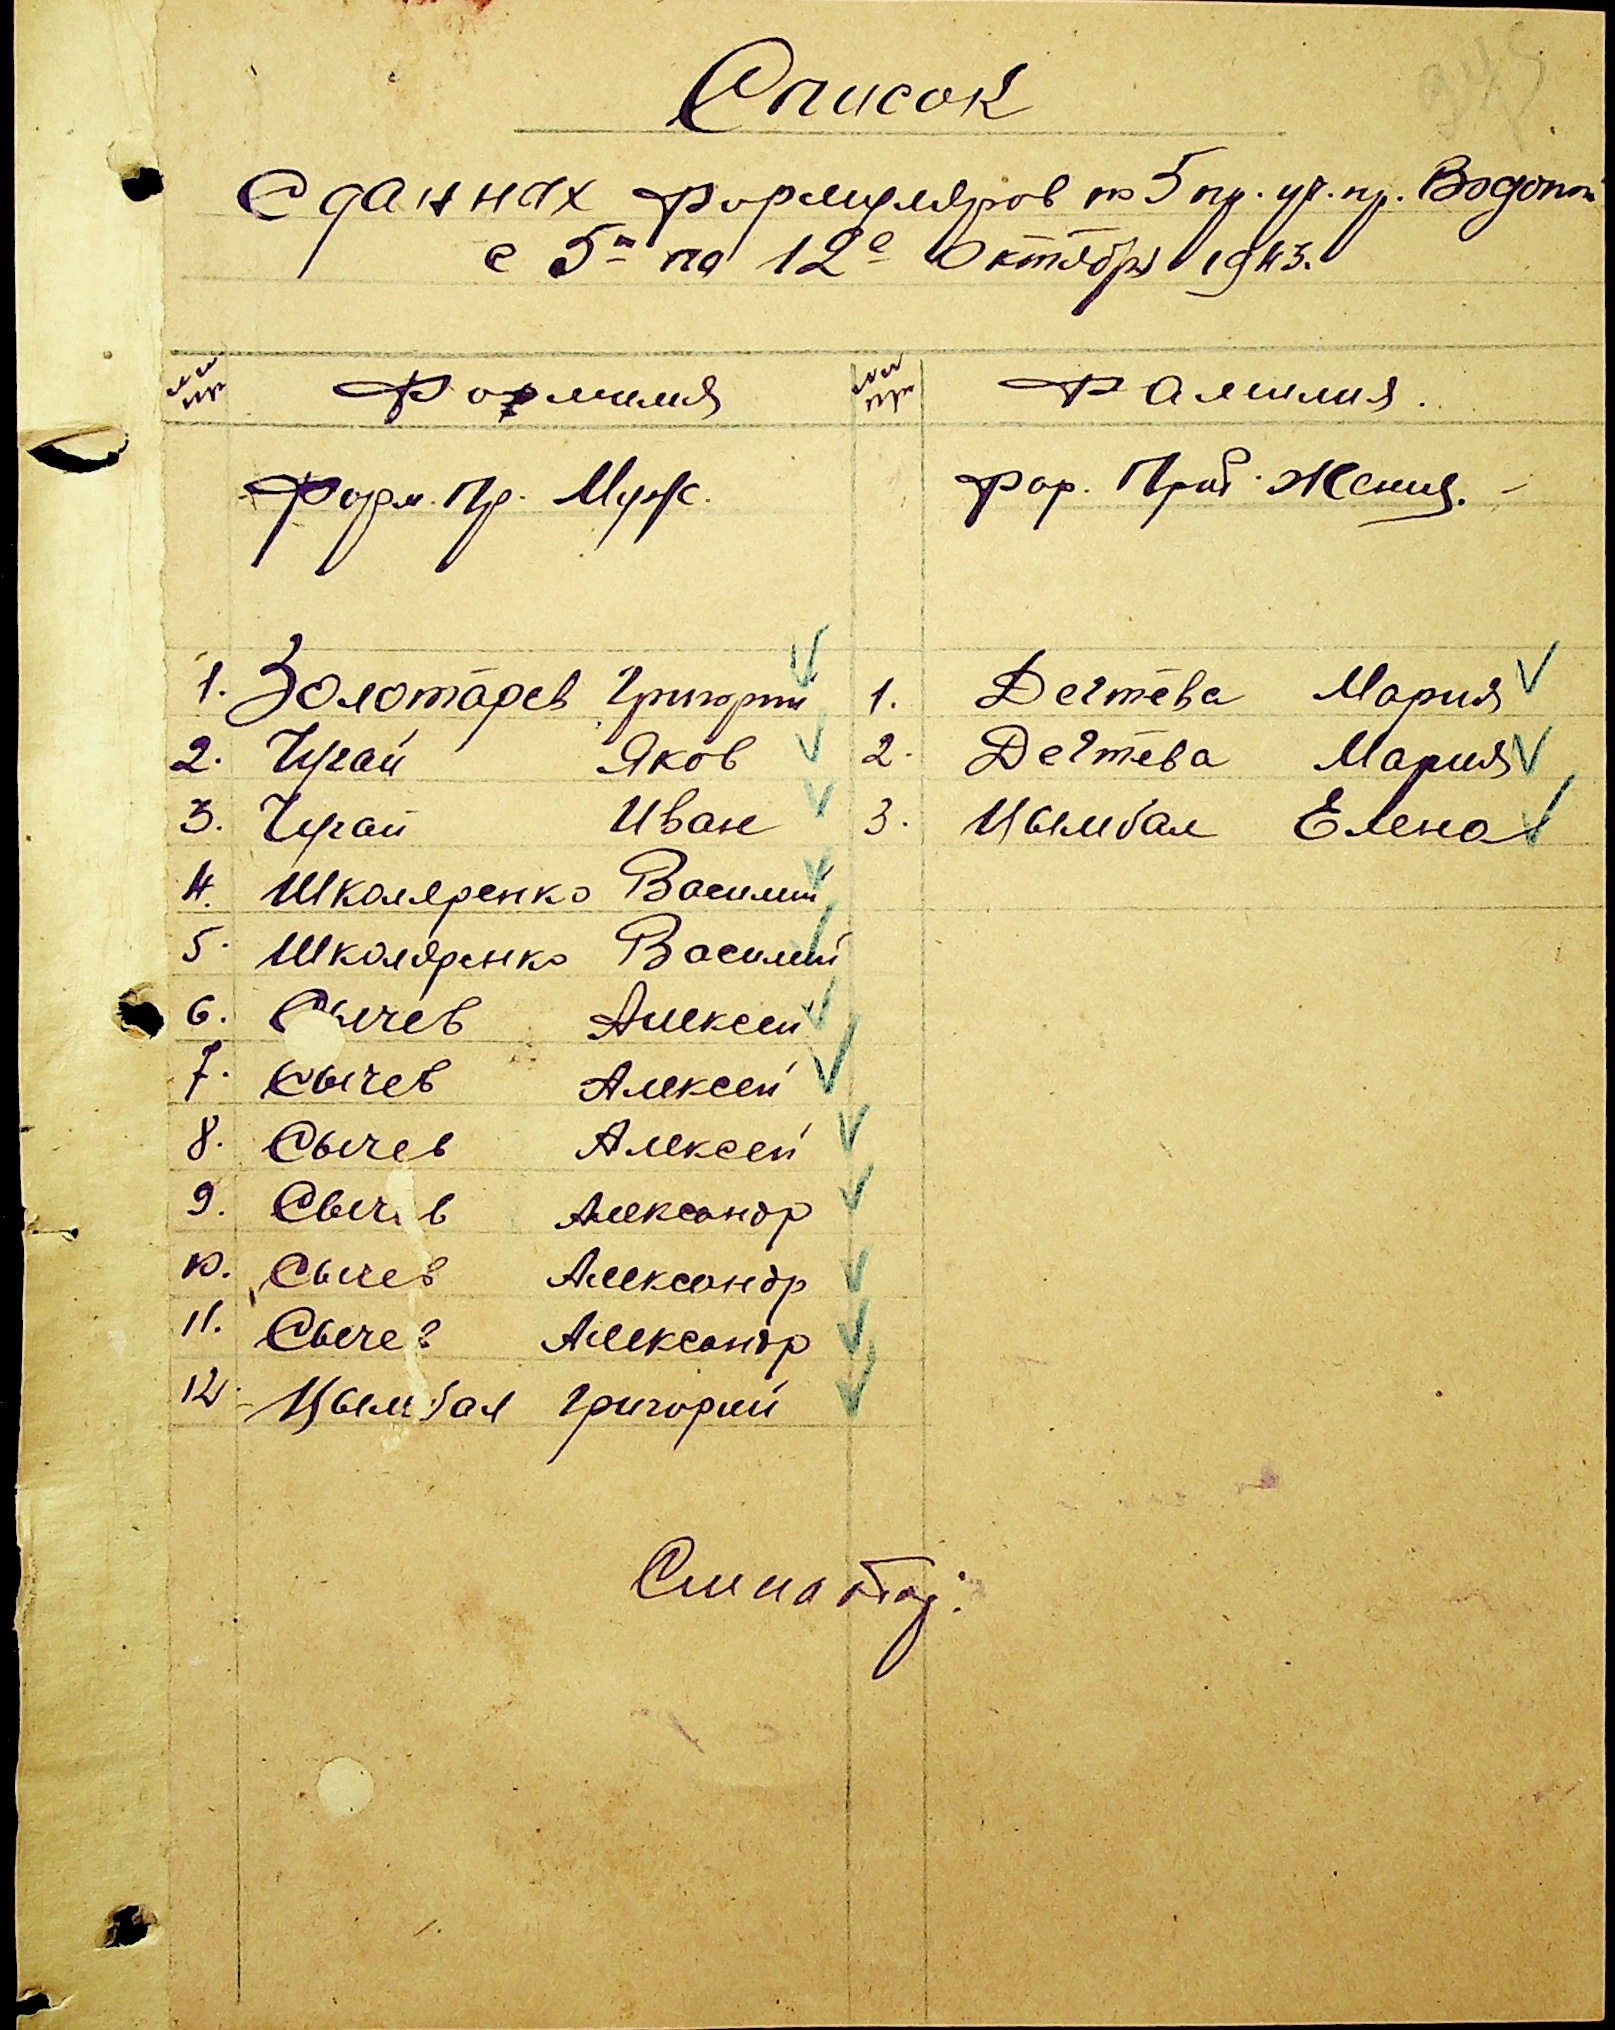 Список
Сданных формуляров по 5 пр. уч. пр. Водопой
с 5го по 12е Октября 1943.
№№ пр Фомилия №№ пр Фамилия.
Форм. Пр. Муж. Фор. Приб. Женщ.
1. Золотарев Григорий 1. Дегтева Мария
2. Чугай Яков 2. Дегтева Мария
3. Чугай Иван 3. Цымбал Елена
4. Школяренко Василий
5. Школяренко Василий
6. Сычев Алексей
7. Сычев Алексей
8. Сычев Алексей
9. Сычев Александр
10. Сычев Александр
11. Сычев Александр
12. Цымбал Григорий